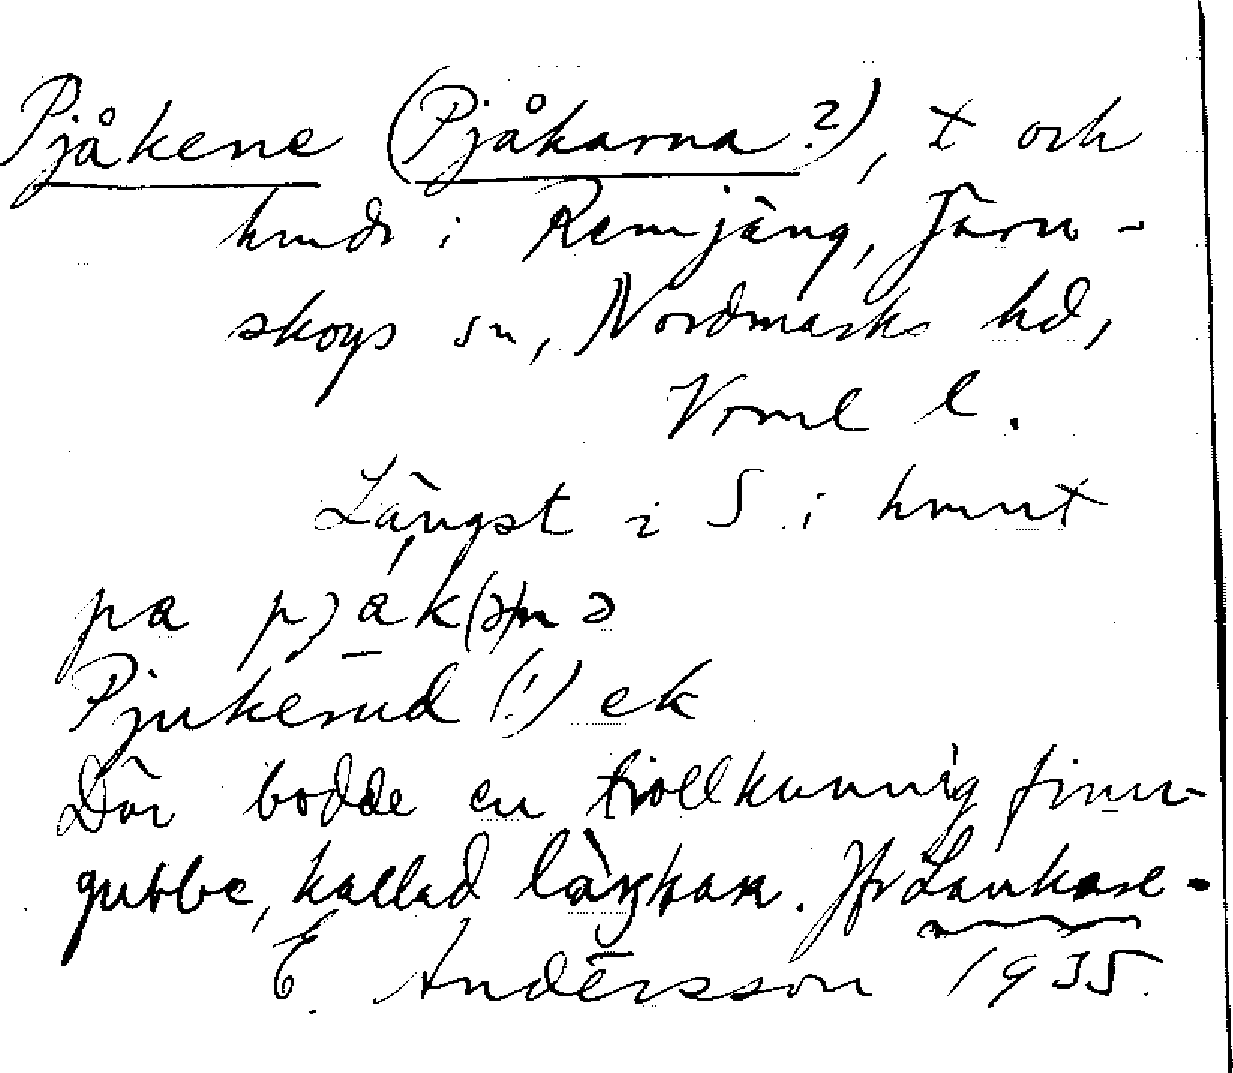 Pjåkene (Pjåkarna?), t och
hmdr i Remjäng, Järn-
skogs sn, Nordmarks hd,
Vrml l.
Längst i S i hmnt
pa pjak(ə)nə
Pjukerud (!) ek
Där bodde en trollkunnig finn-
gubbe, kallad làŋkaɴ. Jfr Lankase-
E. Andersson 1935.